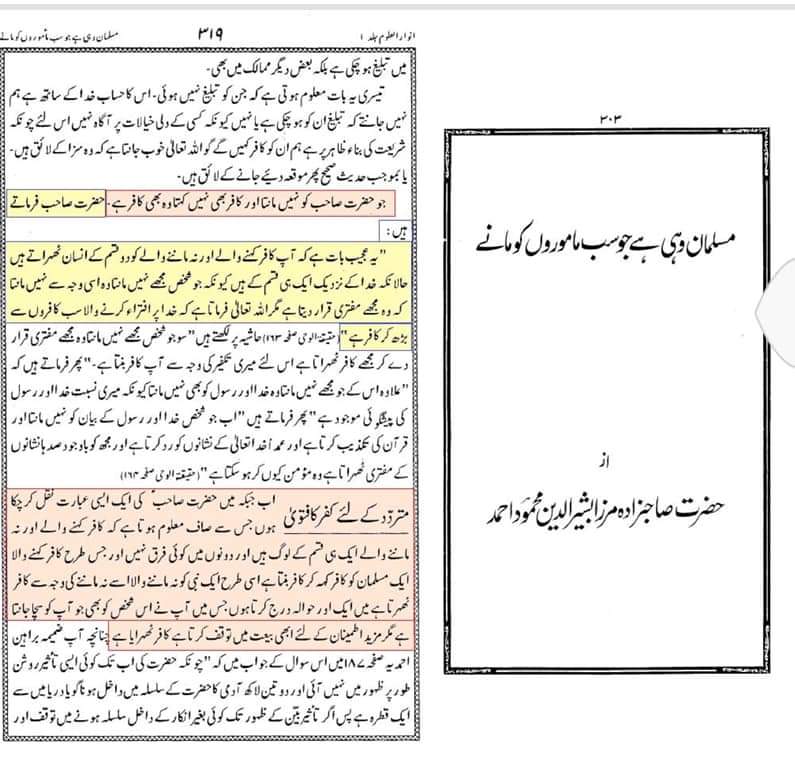 انوار العلوم جلد ۱
۳۱۹
مسلمان وہی ہے جو سب ماموروں کو مانے
میں تبلیغ ہو چکی ہے بلکہ بعض دیگر ممالک میں بھی۔
تیسری یہ بات معلوم ہوتی ہے کہ جن کو تبلیغ نہیں ہوئی۔ اس کا حساب خدا کے ساتھ ہے ہم
نہیں جانتے کہ تبلیغ ان کو ہو چکی ہے یا نہیں کیونکہ کسی کے دلی خیالات پر آگاہ نہیں اس لئے چونکہ
شریعت کی بناء ظاہر پر ہے ہم ان کو کافر کہیں گے گو اللہ تعالیٰ خوب جانتا ہے کہ وہ سزا کے لائق ہیں۔
یا بموجب حدیث صحیح پھر موقعہ دیئے جانے کے لائق ہیں۔
جو حضرت صاحب کو نہیں مانتا اور کافر بھی نہیں کہتا وہ بھی کافر ہے۔ حضرت صاحب فرماتے
ہیں:
"یہ عجیب بات ہے کہ آپ کافر کہنے والے اور نہ ماننے والے کو دو قسم کے انسان ٹھہراتے ہیں
حالانکہ خدا کے نزدیک ایک ہی قسم کے ہیں کیونکہ جو شخص مجھے نہیں مانتا وہ اسی وجہ سے نہیں مانتا
کہ وہ مجھے مفتری قرار دیتا ہے مگر اللہ تعالیٰ فرماتا ہے کہ خدا پر افتراء کرنے والا سب کافروں سے
بڑھ کر کافر ہے" (حقیقۃ الوحی صفحہ ۱۶۳) حاشیہ پر لکھتے ہیں "سو جو شخص مجھے نہیں مانتا وہ مجھے مفتری قرار
دے کر مجھے کافر ٹھہراتا ہے اس لئے میری تکفیر کی وجہ سے آپ کافر بنتا ہے۔" پھر فرماتے ہیں کہ
"علاوہ اس کے جو مجھے نہیں مانتا وہ خدا اور رسول کو بھی نہیں مانتا کیونکہ میری نسبت خدا اور رسول
کی پیشگوئی موجود ہے" پھر فرماتے ہیں "اب جو شخص خدا اور رسول کے بیان کو نہیں مانتا اور
قرآن کی تکذیب کرتا ہے اور عمداً خدا تعالیٰ کے نشانوں کو رد کرتا ہے اور مجھ کو باوجود صدہا نشانوں
کے مفتری ٹھہراتا ہے وہ مؤمن کیوں کر ہو سکتا ہے" (حقیقۃ الوحی صفحہ ۱۶۴)
متردّد کے لئے کفر کا فتویٰ
اب جبکہ میں حضرت صاحبؑ کی ایک ایسی عبارت نقل کر چکا
ہوں جس سے صاف معلوم ہوتا ہے کہ کافر کہنے والے اور نہ
ماننے والے ایک ہی قسم کے لوگ ہیں اور دونوں میں کوئی فرق نہیں اور جس طرح کافر کہنے والا
ایک مسلمان کو کافر کہہ کر کافر بنتا ہے اسی طرح ایک نبی کو نہ ماننے والا اسے نہ ماننے کی وجہ سے کافر
ٹھہرتا ہے میں ایک اور حوالہ درج کرتا ہوں جس میں آپ نے اس شخص کو بھی جو آپ کو سچا جانتا
ہے مگر مزید اطمینان کے لئے ابھی بیعت میں توقف کرتا ہے کافر ٹھہرایا ہے چنانچہ آپ ضمیمہ براہین
احمدیہ صفحہ ۱۸۷ میں اس سوال کے جواب میں کہ "چونکہ حضرت کی اب تک کوئی ایسی تاثیر روشن
طور پر ظہور میں نہیں آئی اور دو تین لاکھ آدمی کا حضرت کے سلسلہ میں داخل ہونا گویا دریا میں سے
ایک قطرہ ہے پس اگر تاثیر بیّن کے ظہور تک کوئی بغیر انکار کے داخل سلسلہ ہونے میں توقف اور
۳۰۳
مسلمان وہی ہے جو سب ماموروں کو مانے
از
حضرت صاحبزادہ مرزا بشیر الدین محمود احمد